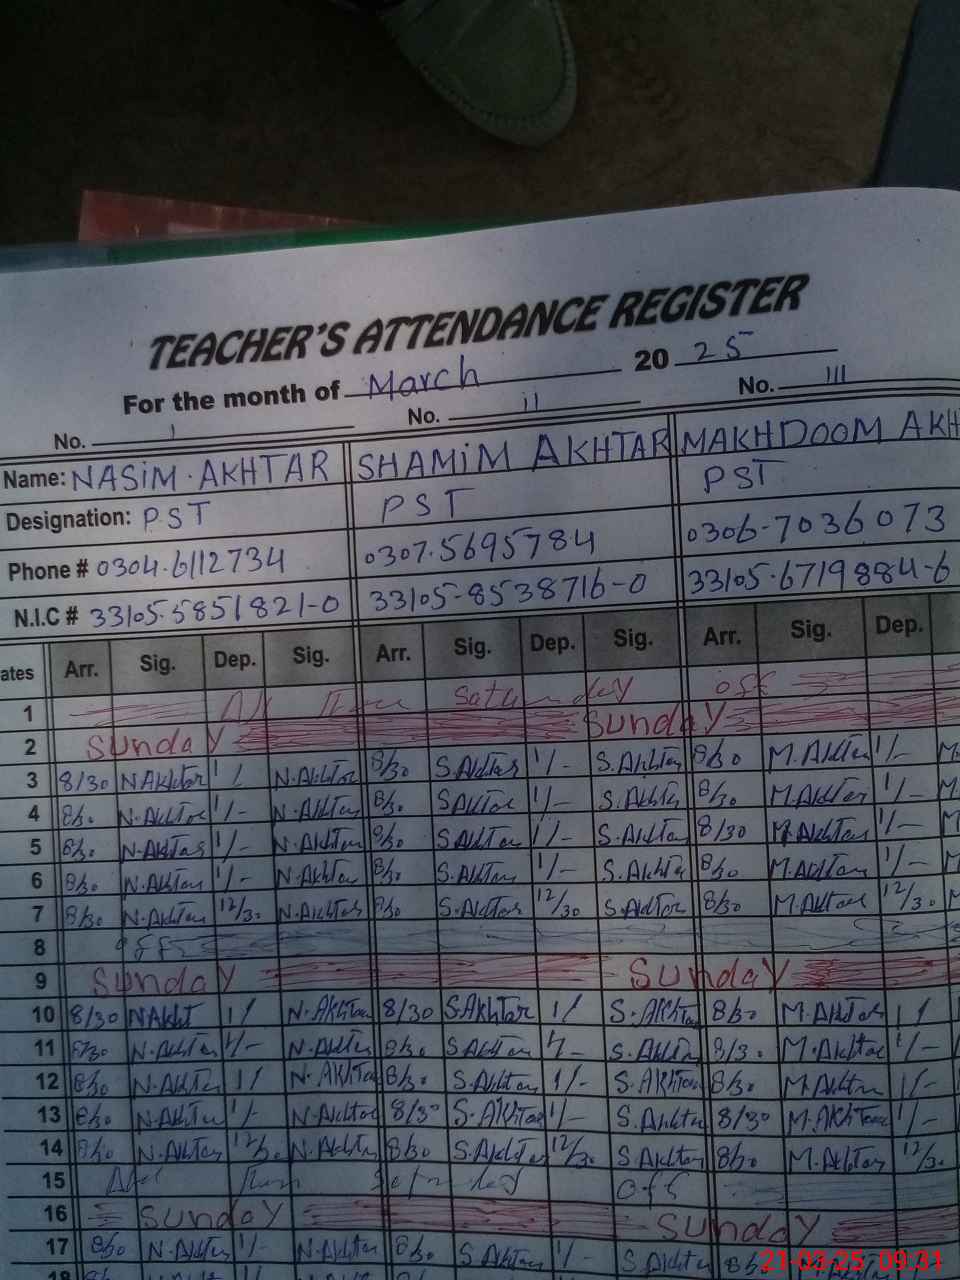 TEACHER'S ATTENDANCE REGISTER
For the month of March 20 25
No. I No. ii No. III
Name: NASiM. AKHTAR SHAMiM AKHTAR MAKHDOOM AKH
Designation: PST PST PST
Phone # 0304.6112734 0307.5695784 0306-7036073
N.I.C # 33105.5851821-0 33105-8538716-0 33105.6719884-6
ates Arr. Sig. Dep. Sig. Arr. Sig. Dep. Sig. Arr. Sig. Dep.
1 Saturday off
2 Sunday Sunday
3 8/30 N.Akhtar 1/- N.Akhtar 8/30 S.Akhtar 1/- S.Akhtar 8/30 M.Akhtar 1/- M.
4 8/30 N.Akhtar 1/- N.Akhtar 8/30 S.Akhtar 1/- S.Akhtar 8/30 M.Akhtar 1/- M
5 8/30 N.Akhtar 1/- N.Akhtar 8/30 S.Akhtar 1/- S.Akhtar 8/30 M.Akhtar 1/- M
6 8/30 N.Akhtar 1/- N.Akhtar 8/30 S.Akhtar 1/- S.Akhtar 8/30 M.Akhtar 1/- M
7 8/30 N.Akhtar 12/30 N.Akhtar 8/30 S.Akhtar 12/30 S.Akhtar 8/30 M.Akhtar 12/30 M
8 off
9 Sunday Sunday
10 8/30 NAkht 1/ N.Akhtar 8/30 S.Akhtar 1/ S.Akhtar 8/30 M.Akhtar 1/
11 8/30 N.Akhtar 1/- N.Akhtar 8/30 S.Akhtar 1/- S.Akhtar 8/30 M.Akhtar 1/-
12 8/30 N.Akhtar 1/ N.Akhtar 8/30 S.Akhtar 1/- S.Akhtar 8/30 M.Akhtar 1/-
13 8/30 N.Akhtar 1/- N.Akhtar 8/30 S.Akhtar 1/- S.Akhtar 8/30 M.Akhtar 1/-
14 8/30 N.Akhtar 12/30 N.Akhtar 8/30 S.Akhtar 12/30 S.Akhtar 8/30 M.Akhtar 12/30
15 off
16 Sunday Sunday
17 8/30 N.Akhtar 1/- N.Akhtar 8/30 S.Akhtar 1/- S.Akhtar
18
21-03-25 09:31